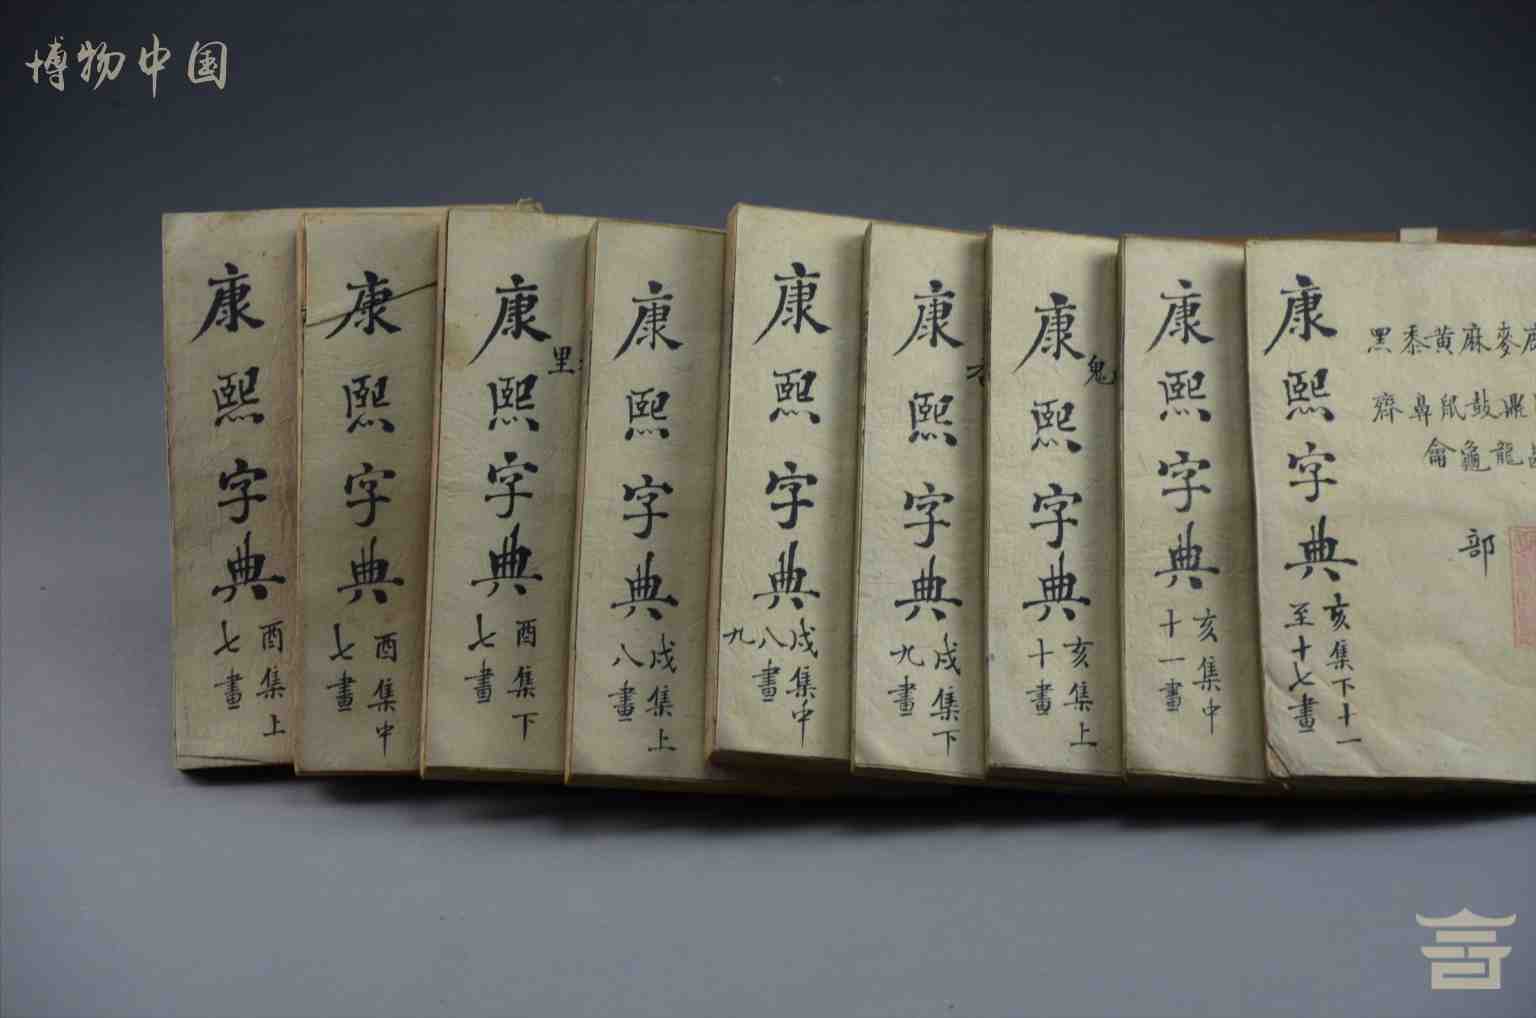 博物中国
康熙字典
酉集上
七畫
康熙字典
酉集中
七畫
康熙字典
酉集下
七畫
里
康熙字典
戌集上
八畫
康熙字典
戌集中
八畫
九
康熙字典
戌集下
九畫
康熙字典
亥集上
十畫
鬼
康熙字典
亥集中
十一畫
康熙字典
亥集下十一
至十七畫
麥麻黄黍黑
鼎鼓鼠鼻齊
龍龜龠
部